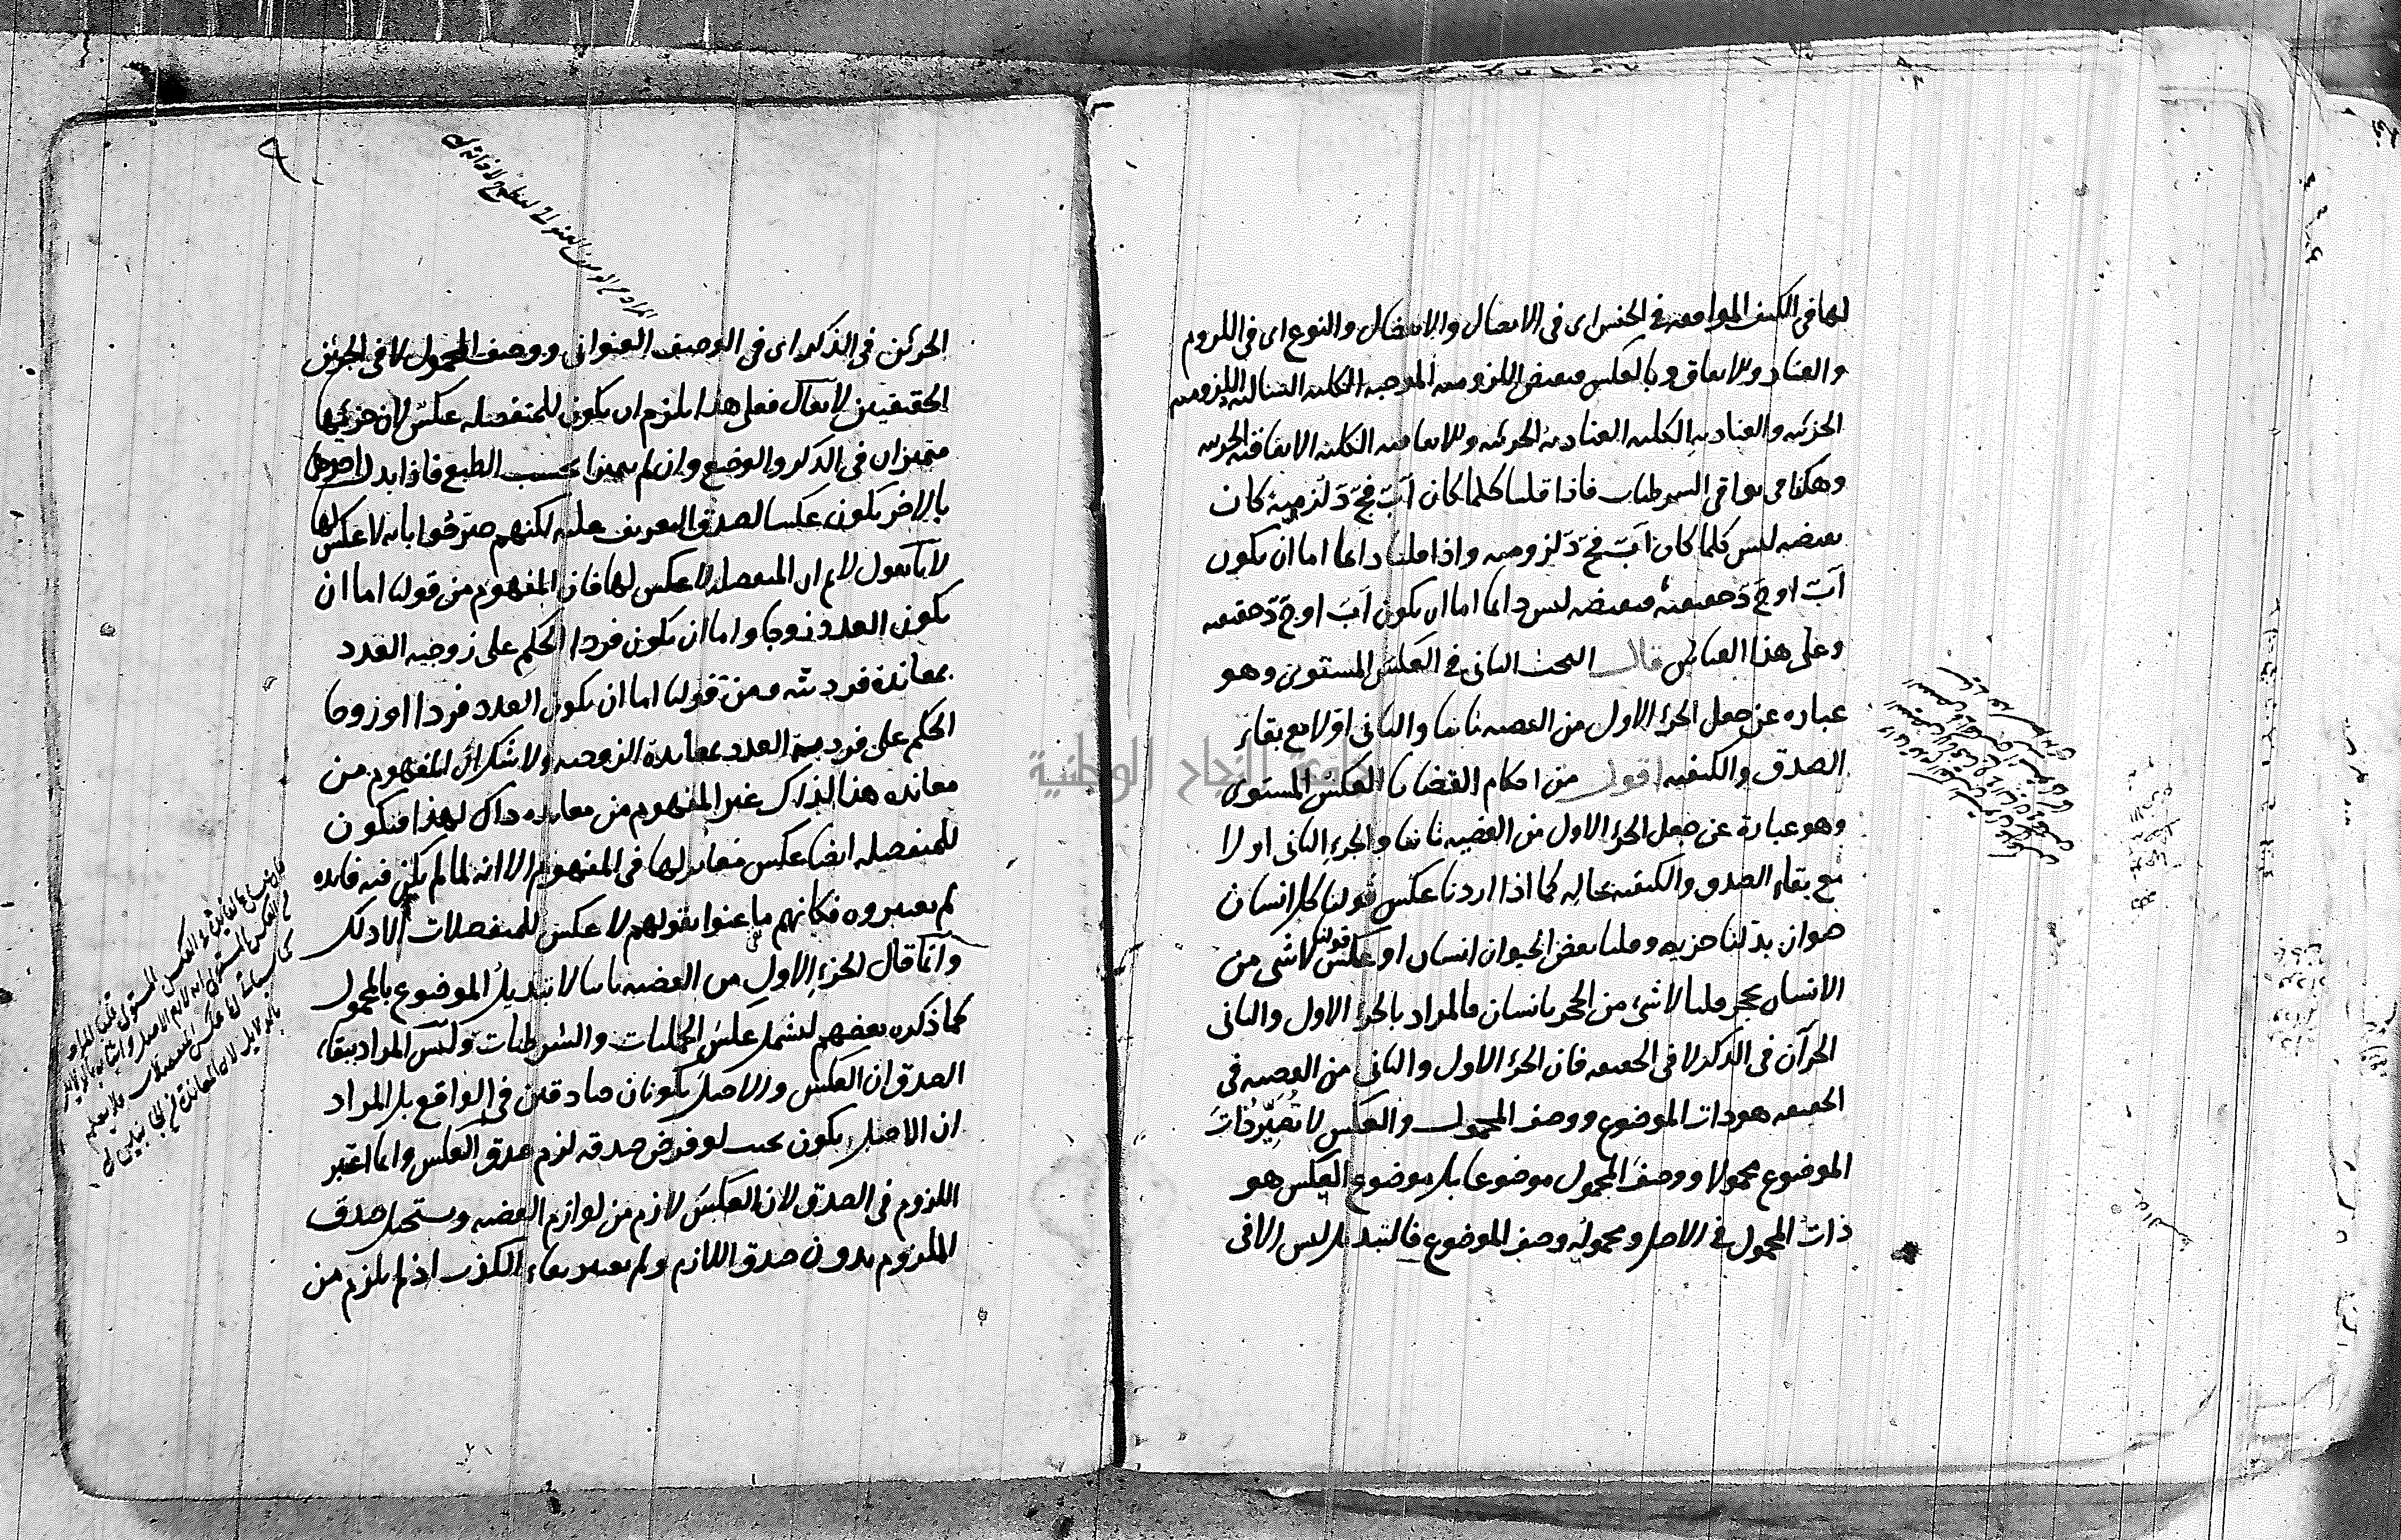 لها في الكيف الموافقة في الجنس اى في الاتصال والانفصال والنوع اى في اللزوم
والعناد والاتفاق وبالعكس فنقيض اللزومية الموجبة الكلية السالبة اللزومية
الجزئية والعنادية الكلية العنادية الجزئية والاتفاقية الكلية الاتفاقية الجزئية
وهكذا في بواقي الشرطيات فاذا قلنا كلما كان اَبَ فجَ دَ لزومية كان
نقيضه ليس كلما كان اَبَ فجَ دَ لزومية واذا قلنا دائما اما ان يكون
اَبَ او جَ دَ حقيقية فنقيضه ليس دائما اما ان يكون اَبَ او جَ دَ حقيقية
وعلى هذا القياس قال البحث الثاني في العكس المستوى وهو
عبارة عن جعل الجزء الاول من القضية ثانيا والثاني اولا مع بقاء
الصدق والكيفية اقول من احكام القضايا العكس المستوى
وهو عبارة عن جعل الجزء الاول من القضية ثانيا والجزء الثاني اولا
مع بقاء الصدق والكيفية بحاله كما اذا اردنا عكس قولنا كل انسان
حيوان بدلنا جزئيه وقلنا بعض الحيوان انسان او عكس قولنا لا شئ من
الانسان بحجر قلنا لا شئ من الحجر بانسان فالمراد بالجزء الاول والثاني
الجزآن في الذكر لا في الحقيقة فان الجزء الاول والثاني من القضية في
الحقيقة هو ذات الموضوع ووصف المحمول والعكس لا تُصَيِّرُ ذاتَ
الموضوع محمولا ووصفَ المحمول موضوعا بل موضوع العكس هو
ذات المحمول في الاصل ومحموله وصف الموضوع فالتبديل ليس الا في
جامعة النجاح الوطنية
الجزئين في الذكر اى في الوصف العنوانى ووصف المحمول لا في الجزئين
الحقيقيين لا يقال فعلى هذا يلزم ان يكون للمنفصلة عكس لان جزئيها
متميزان في الذكر والوضع وان لم يتميزا بحسب الطبع فاذا ابدل احدهما
بالاخر يكون عكسا لصدق التعريف عليه لكنهم صرّحوا بانه لا عكس لها
لانا نقول لا نم ان المنفصلة لا عكس لها فان المفهوم من قولنا اما ان
يكون العدد زوجا واما ان يكون فردا الحكم على زوجية العدد
بمعاندة فرديته ومن قولنا اما ان يكون العدد فردا او زوجا
الحكم على فردية العدد بمعاندة الزوجية ولا شك ان المفهوم من
معاندة هذا لذاك غير المفهوم من معاندة ذاك لهذا فيكون
للمنفصلة ايضا عكس مغاير لها في المفهوم الا انه لما لم يكن فيه فايدة
لم يعتبروه فكانهم ما عنوا بقولهم لا عكس للمنفصلات الا ذلك
وانما قال الجزء الاول من القضية ثانيا لا تبديل الموضوع بالمحمول
كما ذكره بعضهم ليشمل عكس الحمليات والشرطيات وليس المراد ببقاء
الصدق ان العكس والاصل يكونان صادقين في الواقع بل المراد
ان الاصل يكون بحيث لو فرض صدقه لزم صدق العكس وانما اعتبر
اللزوم في الصدق لان العكس لازم من لوازم القضية ويستحيل صدق
الملزوم بدون صدق اللازم ولم يعتبر بقاء الكذب اذ لم يلزم من